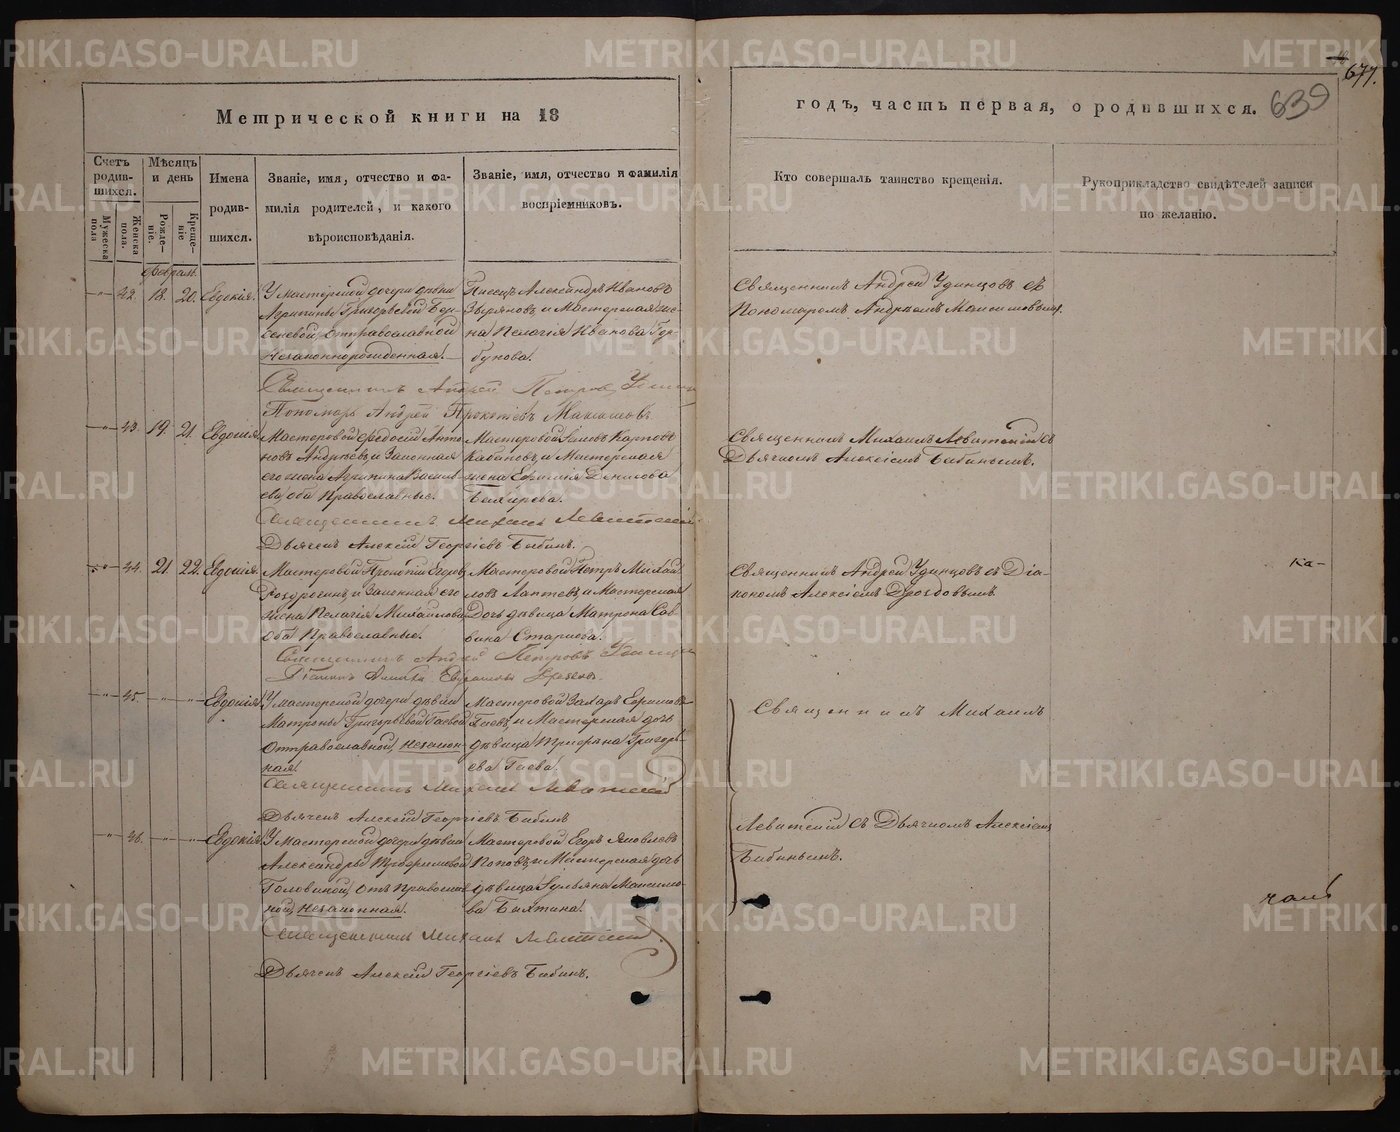 677.
Метрической книги на 18
годъ, часть первая, о родившихся. 639
Счетъ родив-шихся.
Мужеска пола
Женска пола.
Мѣсяцъ и день
Рожде-ніе.
Креще-ніе
Имена родив-шихся.
Званіе, имя, отчество и фа-
милія родителей, и какого
вѣроисповѣданія.
Званіе, имя, отчество и фамилія
воспріемниковъ.
Кто совершалъ таинство крещенія.
Рукоприкладство свидѣтелей записи
по желанію.
Февраль.
42. 18. 20. Евдокія.
У мастерской дочери дѣвки
Агрипины Григорьевой
православной
Незаконнорожденная.
Писецъ Александръ Ивановъ
Зыряновъ и Мастерская же-
на Пелагія Иванова Гор-
бунова.
Священникъ Андрей Удинцовъ съ
Пономаремъ Андреемъ Максимовымъ.
Священникъ Андрей Петровъ
Пономарь Андрей Прокопіевъ
43. 19. 21. Евдокія.
Мастеровой Феодосій Анто-
новъ Андреевъ, и Законная
его жена Агрипина Василь-
ева, оба Православные.
Мастеровой Карповъ
Кабиновъ, и Мастерская
жена Евфимія Данилова
Священникъ Михаилъ Левитскій съ
Дьячкомъ Алексіемъ Бабинымъ.
Священникъ Михаилъ Левитскій
Дьячекъ Алексій Георгіевъ Бабинъ.
44. 21. 22. Евдокія.
Мастеровой Прокопій Егоровъ
и Законная его
жена Пелагія Михайлова
оба Православные.
Мастеровой Петръ Михай-
ловъ Лаптевъ, и Мастерская
Дочь дѣвица Матрона Сав-
вина Старцова.
Священникъ Андрей Удинцовъ съ Діа-
кономъ Алексіемъ Дроздовымъ.
ка-
Священникъ Андрей Петровъ
45. Евдокія
У мастерской дочери дѣвки
Матроны Григорьевой Гаевой
Отъ православной, Незакон-
ная.
Мастеровой Захаръ Ефимовъ
Гаевъ, и Мастерская дочь
дѣвица Григорь-
ева Гаева.
Священникъ Михаилъ
Левитскій съ Дьячкомъ Алексіемъ
Бабинымъ.
Священникъ Михаилъ Левитскій
Дьячекъ Алексій Георгіевъ Бабинъ
46. Евдокія
У Мастерской дочери дѣвки
Александры
Головиной, Отъ Православ-
ной, Незаконная.
Мастеровой Егоръ Яковлевъ
Поповъ, и Мастерская дочь
дѣвица Ульяна Максимо-
ва Бахтина.
Священникъ Михаилъ Левитскій
Дьячекъ Алексій Георгіевъ Бабинъ.
METRIKI.GASO-URAL.RU